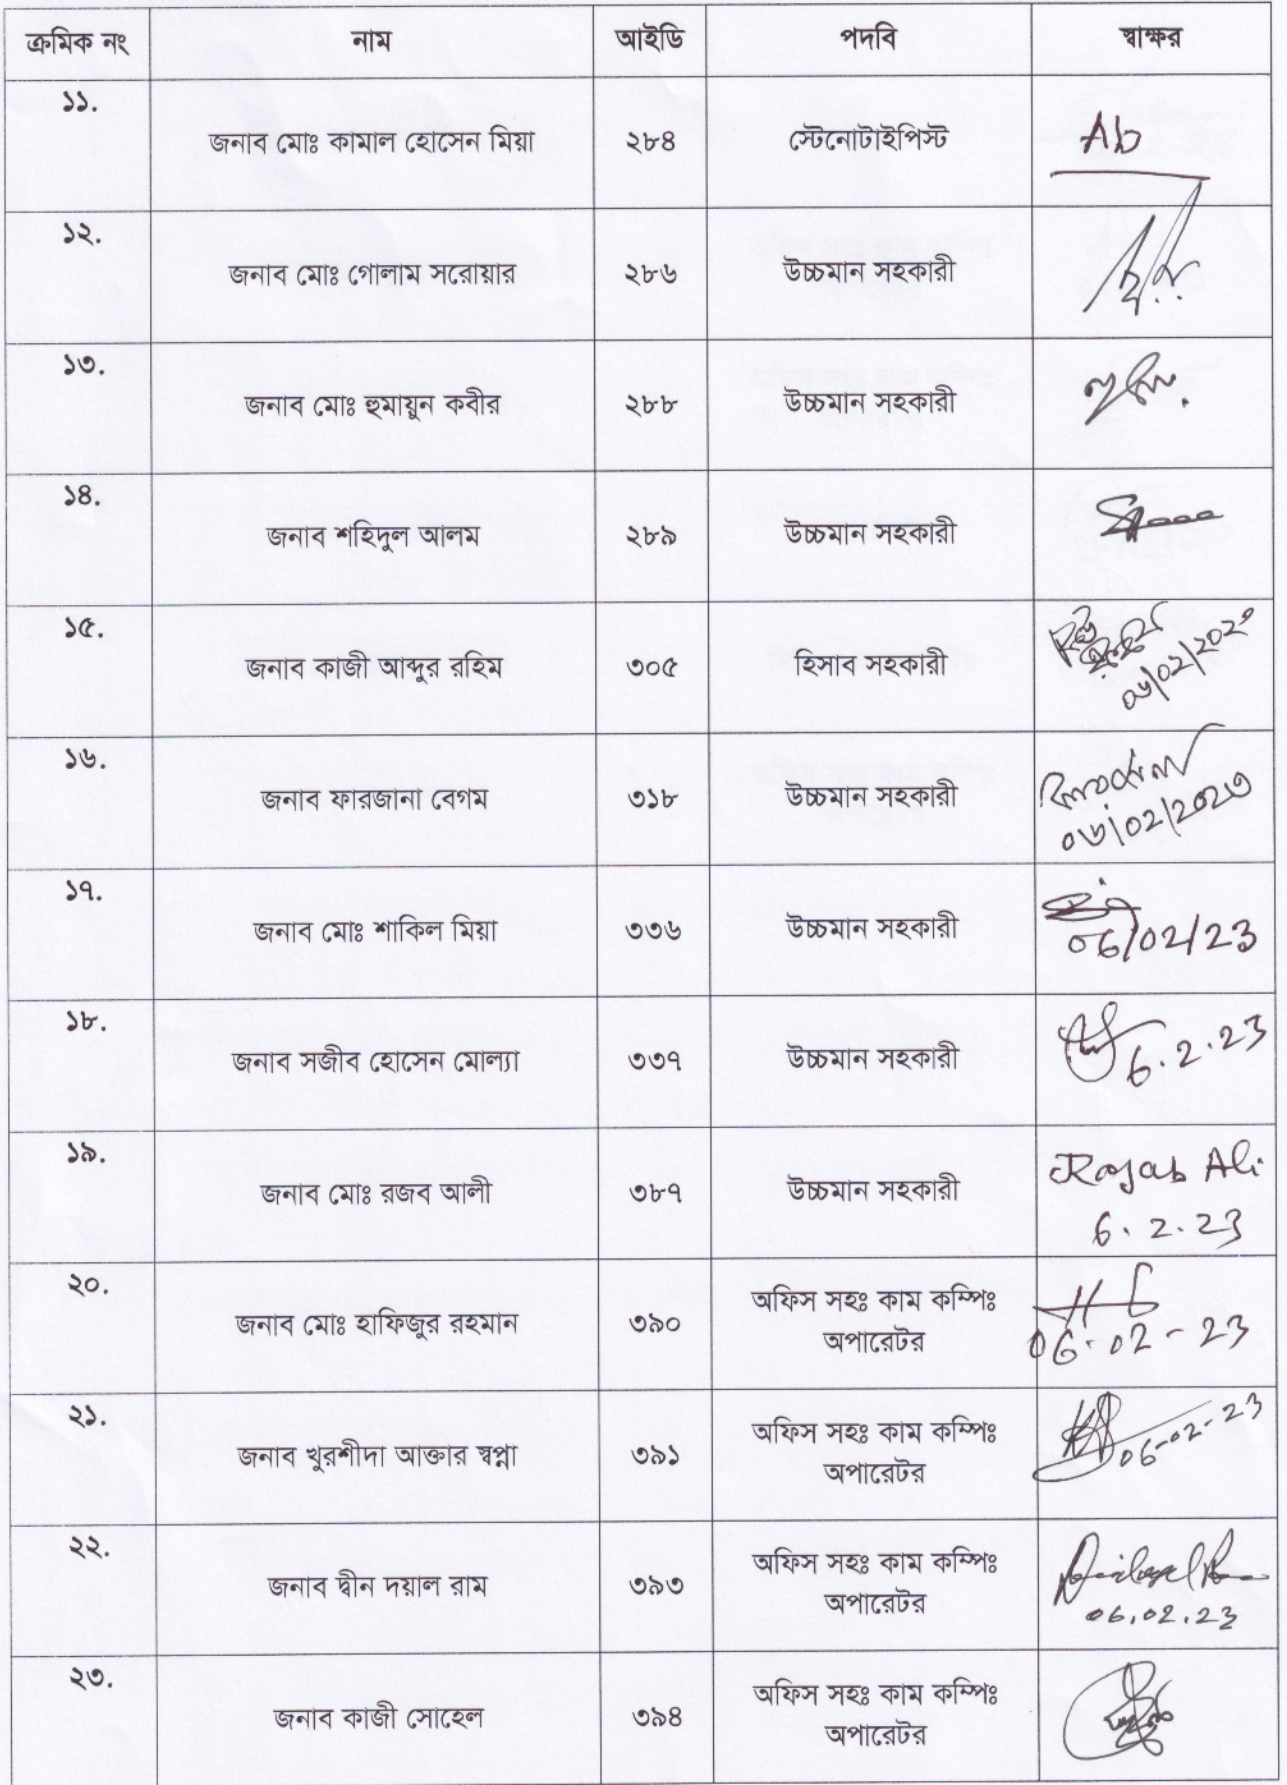 ক্রমিক নং নাম আইডি পদবি স্বাক্ষর
১১.
জনাব মোঃ কামাল হোসেন মিয়া ২৮৪ স্টেনোটাইপিস্ট Ab
১২.
জনাব মোঃ গোলাম সরোয়ার ২৮৬ উচ্চমান সহকারী
১৩.
জনাব মোঃ হুমায়ুন কবীর ২৮৮ উচ্চমান সহকারী
১৪.
জনাব শহিদুল আলম ২৮৯ উচ্চমান সহকারী
১৫.
জনাব কাজী আব্দুর রহিম ৩০৫ হিসাব সহকারী
১৬.
জনাব ফারজানা বেগম ৩১৮ উচ্চমান সহকারী
০৬/০২/২০২৩
১৭.
জনাব মোঃ শাকিল মিয়া ৩৩৬ উচ্চমান সহকারী 06/02/23
১৮.
জনাব সজীব হোসেন মোল্যা ৩৩৭ উচ্চমান সহকারী 6.2.23
১৯.
জনাব মোঃ রজব আলী ৩৮৭ উচ্চমান সহকারী Rajab Ali
6.2.23
২০.
জনাব মোঃ হাফিজুর রহমান ৩৯০ অফিস সহঃ কাম কম্পিঃ
অপারেটর 06-02-23
২১.
জনাব খুরশীদা আক্তার স্বপ্না ৩৯১ অফিস সহঃ কাম কম্পিঃ
অপারেটর 06-02-23
২২.
জনাব দ্বীন দয়াল রাম ৩৯৩ অফিস সহঃ কাম কম্পিঃ
অপারেটর 06.02.23
২৩.
জনাব কাজী সোহেল ৩৯৪ অফিস সহঃ কাম কম্পিঃ
অপারেটর